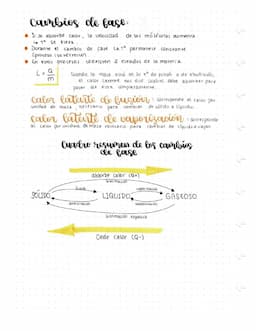 cambios de fase:
Si se absorbe calor, la velocidad de las moléculas aumenta
la Tº se eleva.
Durante el cambio de fase la Tº permanece constante
En estos procesos coexisten 2 estados de la materia.
L = Q
m
Cuando la masa está en la Tº de
el calor latente es el calor que debe absorber para
pasar de
calor latente de fusión: corresponde al calor por
unidad de masa, necesario para cambiar de sólido a líquido.
calor latente de vaporización: corresponde
al calor por unidad de masa necesario para cambiar de líquido a vapor.
Cuadro resumen de los cambios
de fase
Absorbe calor (Q+)
sublimación
SÓLIDO
LÍQUIDO
GASEOSO
sublimación regresiva
Cede calor (Q-)